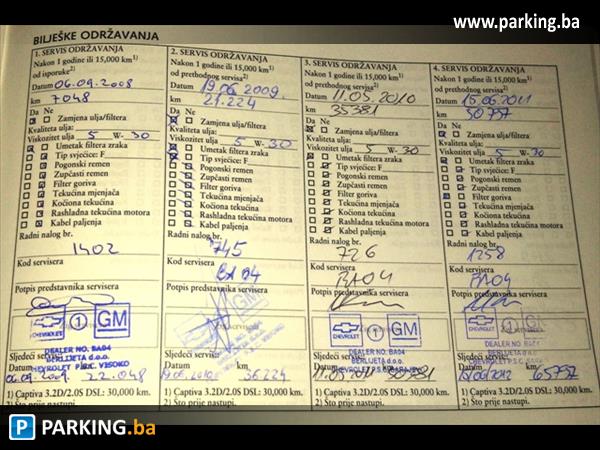 www.parking.ba
BILJEŠKE ODRŽAVANJA
1. SERVIS ODRŽAVANJA
Nakon 1 godine ili 15,000 km1)
od isporuke2)
Datum 06.09.2008
km 7048
Da Ne
Zamjena ulja/filtera
Kvaliteta ulja:
Viskozitet ulja 5 W- 30
Umetak filtera zraka
Tip svjećice: F
Pogonski remen
Zupčasti remen
Filter goriva
Tekućina mjenjača
Kočiona tekućina
Rashladna tekućina motora
Kabel paljenja
Radni nalog br.
1402
Kod servisera
Potpis predstavnika servisera
CHEVROLET 1 GM
DEALER NO. BA04
BERLIJETA d.o.o.
CHEVROLET P.S.C. VISOKO
Sljedeći servis:
Datum km
06.09.2009. 22.048
1) Captiva 3.2D/2.0S DSL: 30,000 km.
2) Što prije nastupi.
2. SERVIS ODRŽAVANJA
Nakon 1 godine ili 15,000 km1)
od prethodnog servisa2)
Datum 19.06.2009.
km 21.224
Da Ne
Zamjena ulja/filtera
Kvaliteta ulja:
Viskozitet ulja 5 W- 30
Umetak filtera zraka
Tip svjećice: F
Pogonski remen
Zupčasti remen
Filter goriva
Tekućina mjenjača
Kočiona tekućina
Rashladna tekućina motora
Kabel paljenja
Radni nalog br.
745
Kod servisera
BA 04
Potpis predstavnika servisera
Sljedeći servis:
Datum km
19.06.2010 36224
1) Captiva 3.2D/2.0S DSL: 30,000 km.
2) Što prije nastupi.
3. SERVIS ODRŽAVANJA
Nakon 1 godine ili 15,000 km1)
od prethodnog servisa2)
Datum 11.05.2010
km 35381
Da Ne
Zamjena ulja/filtera
Kvaliteta ulja:
Viskozitet ulja 5 W- 30
Umetak filtera zraka
Tip svjećice: F
Pogonski remen
Zupčasti remen
Filter goriva
Tekućina mjenjača
Kočiona tekućina
Rashladna tekućina motora
Kabel paljenja
Radni nalog br.
726
Kod servisera
BA04
Potpis predstavnika servisera
CHEVROLET 1 GM
DEALER NO. BA04
BERLIJETA d.o.o.
CHEVROLET P.S.C. SARAJEVO
Sljedeći servis:
Datum km
11.05.2011 50381
1) Captiva 3.2D/2.0S DSL: 30,000 km.
2) Što prije nastupi.
4. SERVIS ODRŽAVANJA
Nakon 1 godine ili 15,000 km1)
od prethodnog servisa2)
Datum 15.06.2011
km 50757
Da Ne
Zamjena ulja/filtera
Kvaliteta ulja:
Viskozitet ulja 5 W- 30
Umetak filtera zraka
Tip svjećice: F
Pogonski remen
Zupčasti remen
Filter goriva
Tekućina mjenjača
Kočiona tekućina
Rashladna tekućina motora
Kabel paljenja
Radni nalog br.
1258
Kod servisera
BA04
Potpis predstavnika servisera
CHEVROLET 1 GM
DEALER NO. BA04
BERLIJETA d.o.o.
Sljedeći servis:
Datum km
15/06/2012 65757
1) Captiva 3.2D/2.0S DSL: 30,000 km.
2) Što prije nastupi.
P PARKING.ba